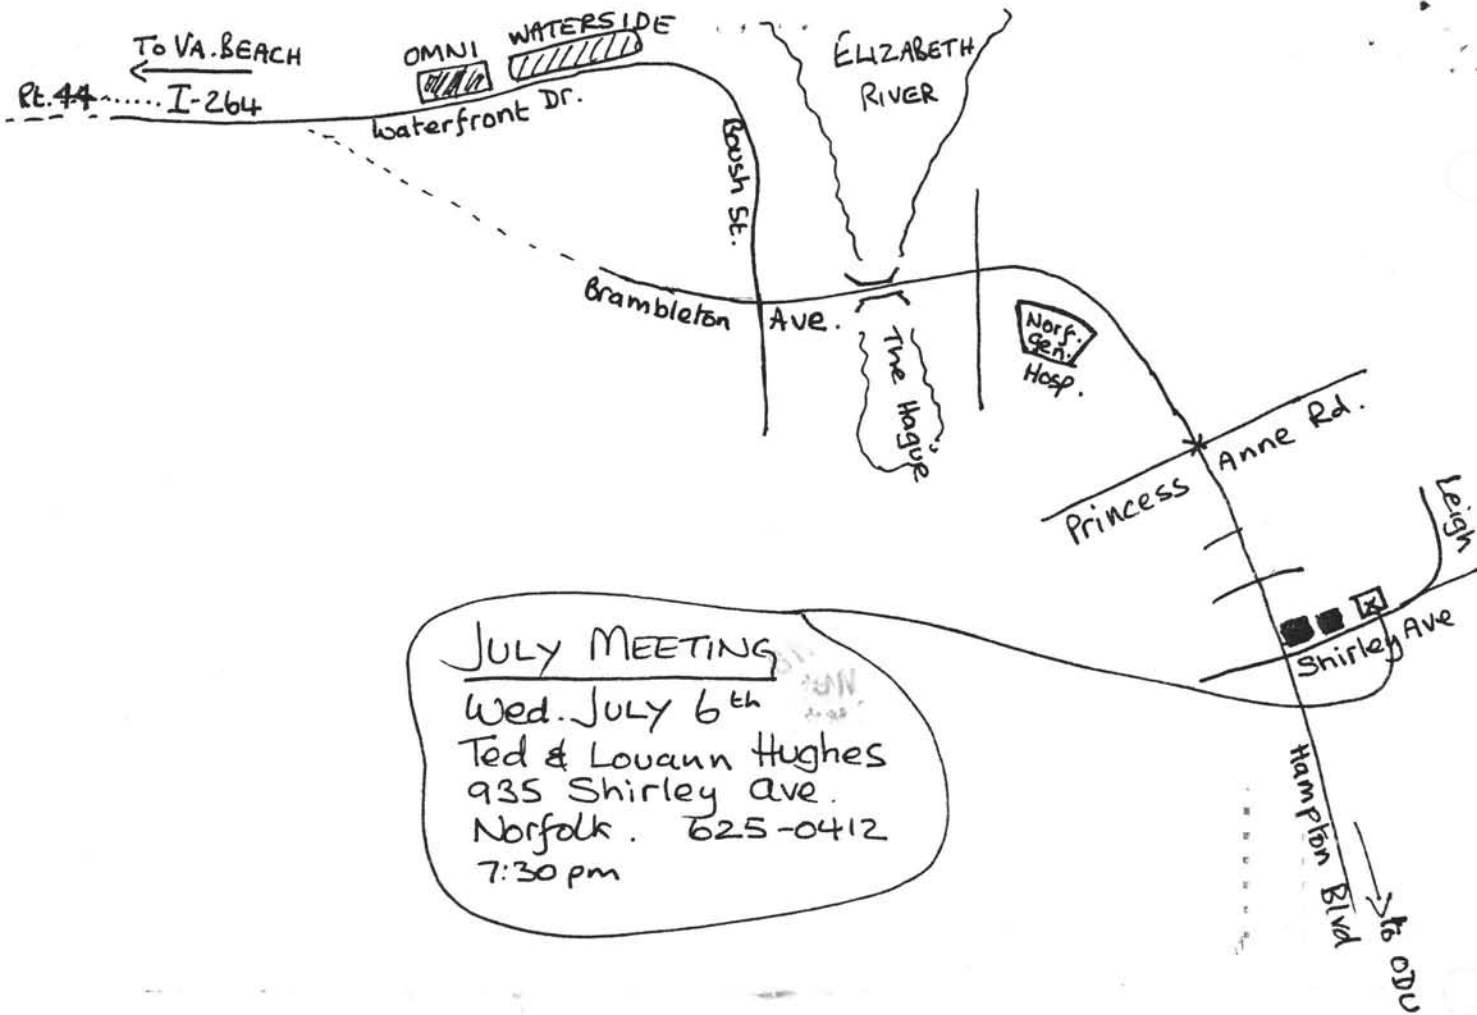 To VA. BEACH
Rt. 44 ...... I-264
OMNI
WATERSIDE
Waterfront Dr.
Boush St.
ELIZABETH
RIVER
Brambleton Ave.
"The Hague"
Norf.
gen.
Hosp.
Princess Anne Rd.
Leigh
Shirley Ave
Hampton Blvd
to ODU
JULY MEETING
Wed. JULY 6th
Ted & Louann Hughes
935 Shirley Ave.
Norfolk. 625-0412
7:30 pm